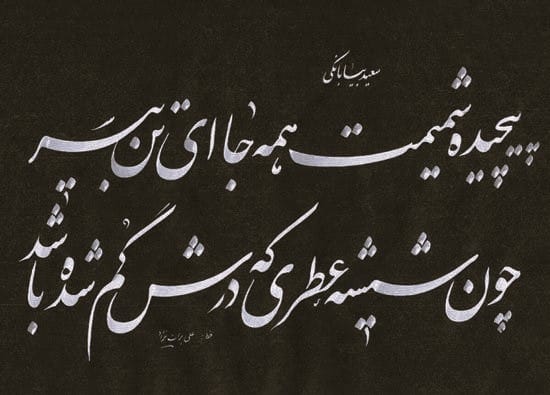 سعید بیابانکی
پیچیده شمیمت همه جا ای تن بی سر
چون شیشه عطری که درش گم شده باشد
خط: علی برات نژاد